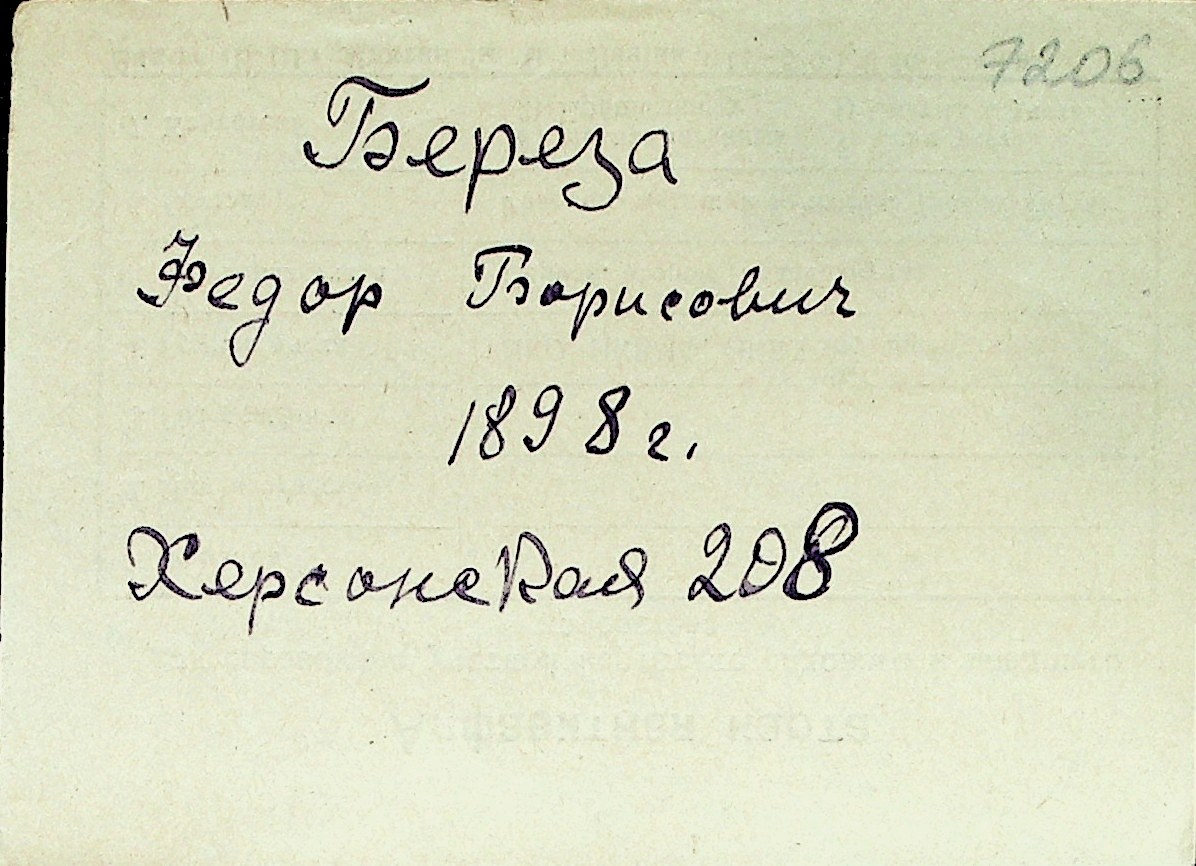 7206
Береза
Федор Борисович
1898 г.
Херсонская 208